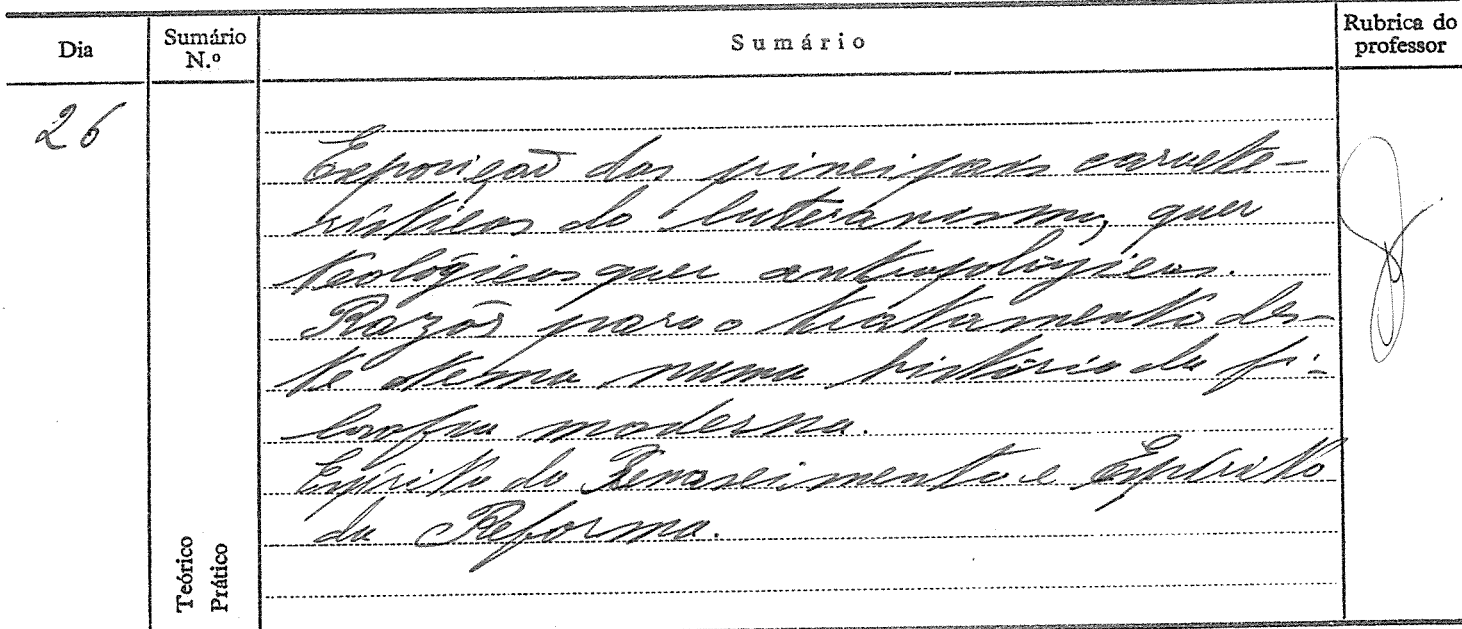 Dia
Sumário N.º
Sumário
Rubrica do professor
26
Exposição das principais caracte-
rísticas do luteranismo, quer
teológicas quer antropológicas.
Razões para o tratamento des-
te tema numa história da fi-
losofia moderna.
Espírito do Renascimento e Espírito
da Reforma.
Teórico
Prático